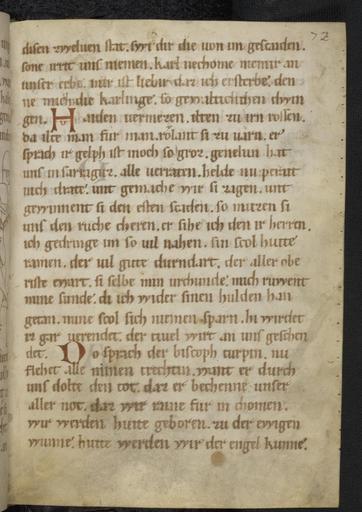 72
disen zwelven stat. swi dir die von im gescaiden.
sone irret uns niemen. karl nechome niemir an
unser erbe. mir ist lieber daz ich ersterbe. den
ne mich die karlinge. so gewaltichlichen dwin
gen. Handen vermezen. ilten zu irn rossen.
da ilte man fur man. rolant si zu nam. er
sprach ir gelph ist noch so groz. genelun hat
uns in sarraguz. alle verraten. helde nu
uch drate. unt gemache wir si zagen. unt
gewinnent si den ersten scaden. so muzen si
uns den ruche cheren. er sihe ich den ir herren.
ich gedringe im so vil nahen. sin scol hiute
ramen. der vil gute durndart. der aller obe
riste ewart. si selbe min urchunde. mich ruwent
mine sunde. di ich wider sinen hulden han
getan. nune scol sich niemen sparn. hi wirdet
iz gar verendet. der tiuel wirt an uns geschen
det. Do sprach der biscoph turpin. nu
flehet alle minen trechtin. want er durch
uns dolte den tot. daz er bechenne unser
aller not. daz wir raine fur in chomen.
wir werden hiute geboren. zu der ewigen
wunne. hiute werden wir der engel kunne.